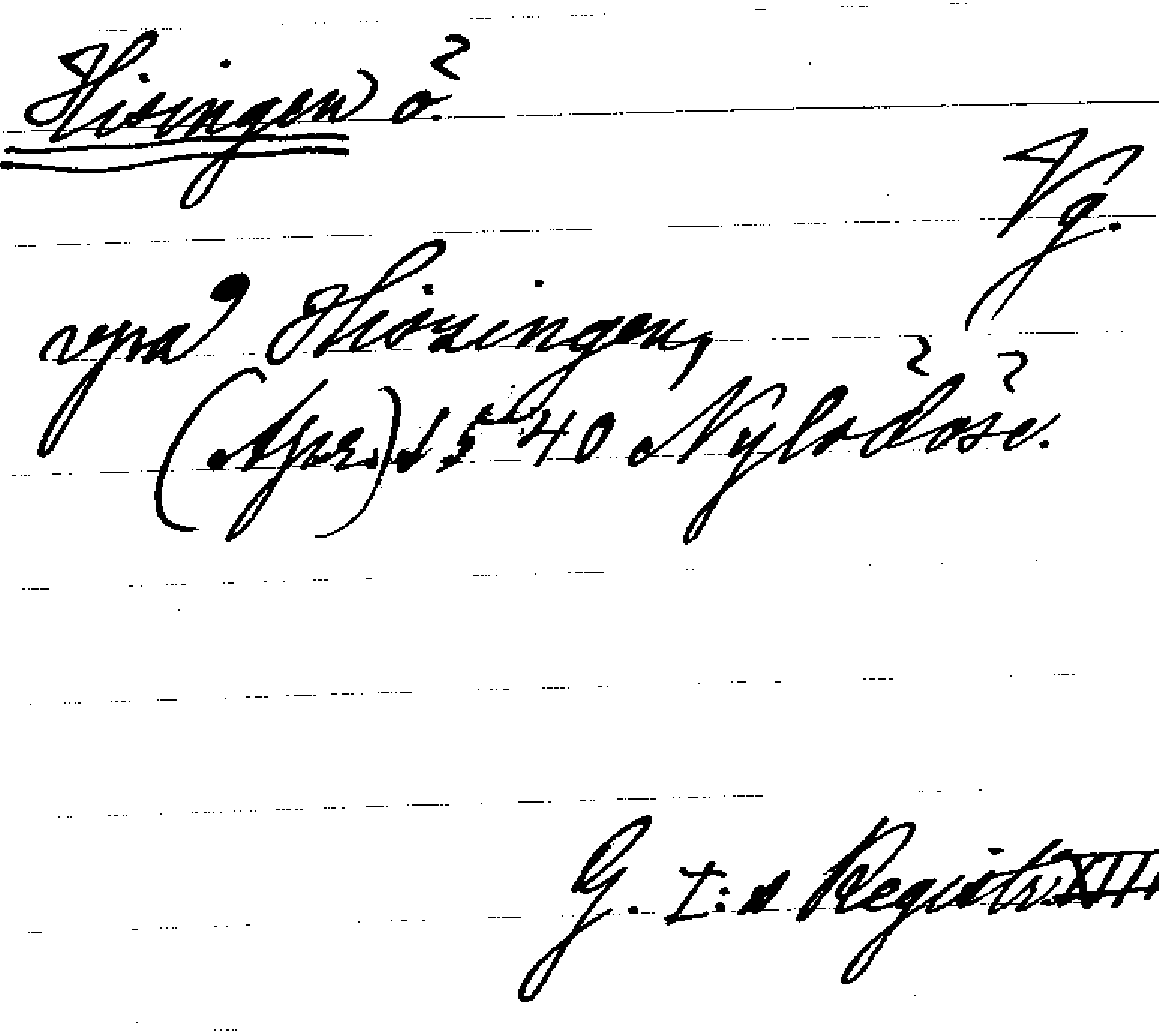 Hisingen ö.
Vg.
vpå Hiszingen,
(Afskr.) 1540 Nylödöse.
G. I:s Registr. XIII